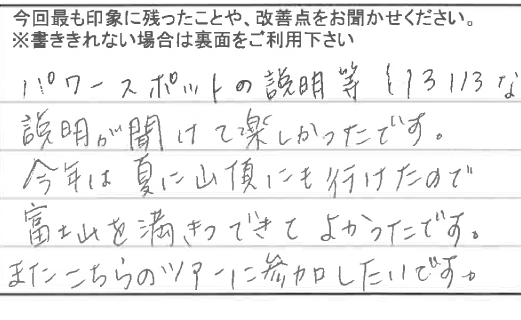 今回最も印象に残ったことや、改善点をお聞かせください。
※書ききれない場合は裏面をご利用下さい
パワースポットの説明等いろいろな
説明が聞けて楽しかったです。
今年は夏に山頂にも行けたので
富士山を満きつできてよかったです。
またこちらのツアーに参加したいです。